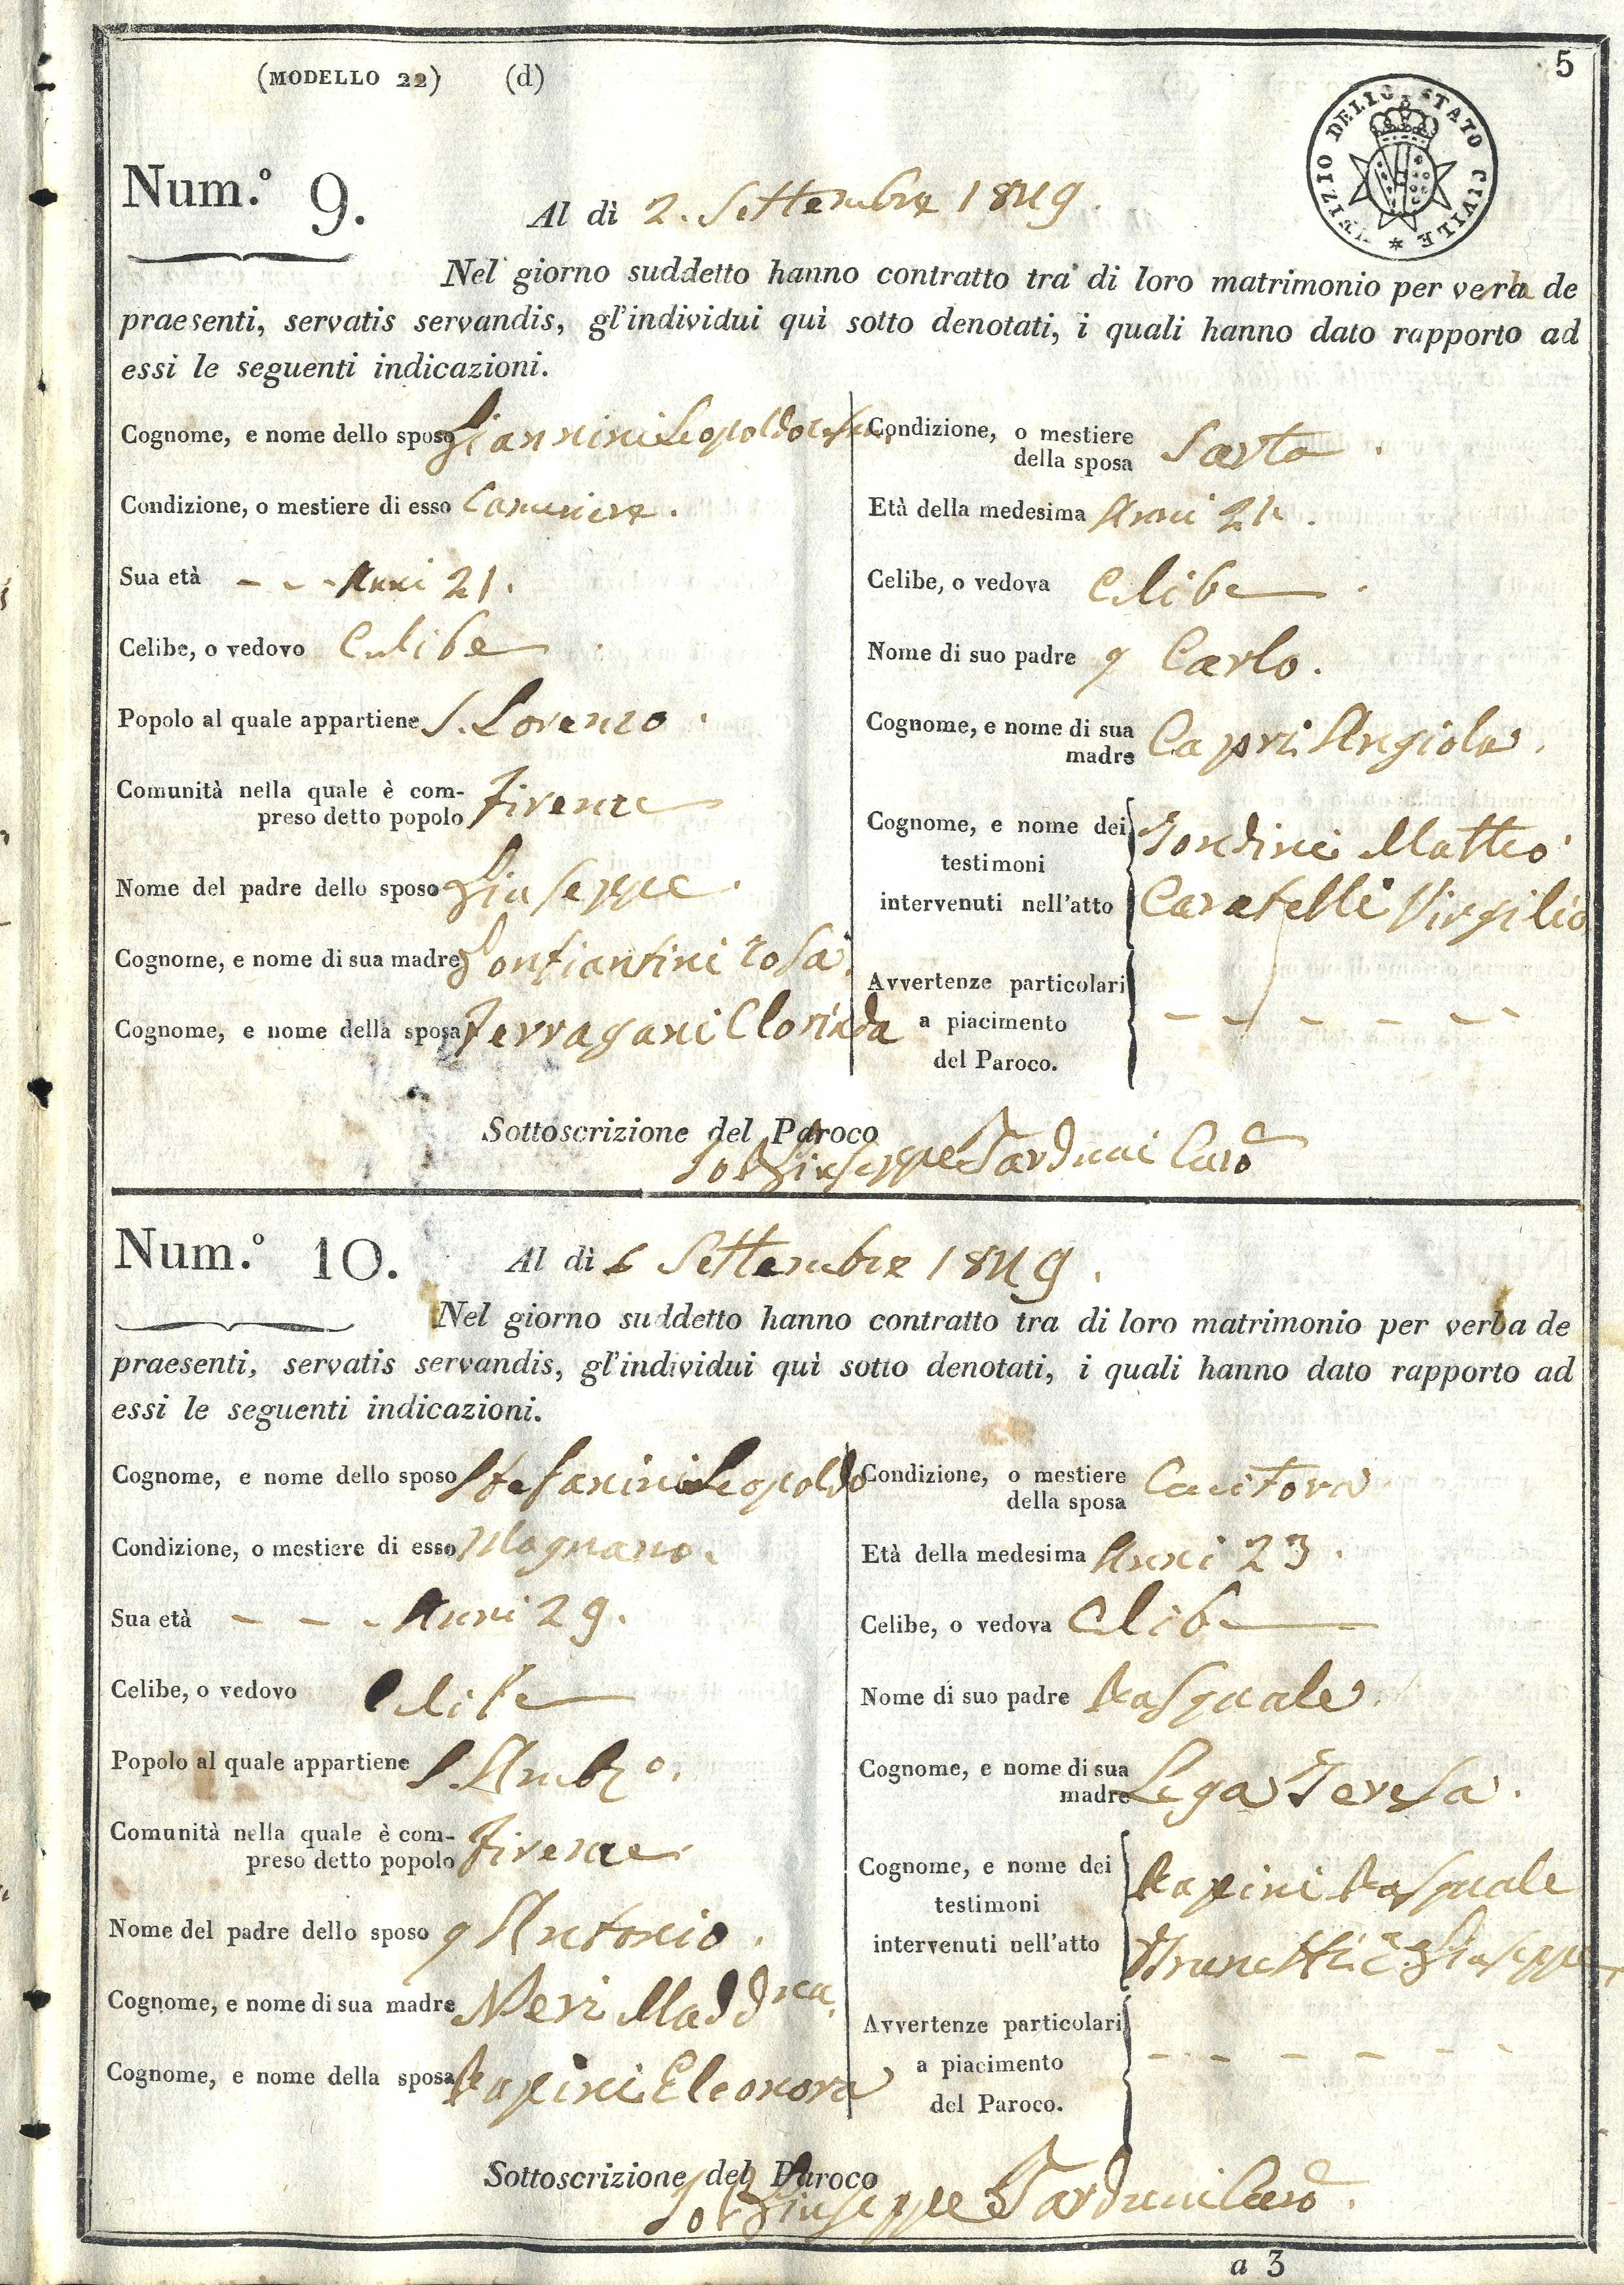 (MODELLO 22) (d)
5
UFIZIO DELLO STATO CIVILE *
Num.º 9.
Al dì 2. Settembre 1849.
Nel giorno suddetto hanno contratto tra di loro matrimonio per verba de
praesenti, servatis servandis, gl'individui quì sotto denotati, i quali hanno dato rapporto ad
essi le seguenti indicazioni.
Cognome, e nome dello sposo Giannini Leopoldo
Condizione, o mestiere di esso
Sua età - - - Anni 21.
Celibe, o vedovo Celibe
Popolo al quale appartiene S. Lorenzo.
Comunità nella quale è com-
preso detto popolo Firenze
Nome del padre dello sposo Giuseppe.
Cognome, e nome di sua madre Gonfiantini Rosa.
Cognome, e nome della sposa Ferragani Clorinda
Condizione, o mestiere
della sposa Sarta.
Età della medesima Anni 21.
Celibe, o vedova Celibe.
Nome di suo padre q Carlo.
Cognome, e nome di sua
madre Capri Angiola.
Cognome, e nome dei
testimoni
intervenuti nell'atto
Tondini Matteo
Caratelli Virgilio
Avvertenze particolari
a piacimento
del Paroco.
- - - - - -
Sottoscrizione del Paroco
Io P. Giuseppe Tarduci Curº
Num.º 10.
Al dì 6 Settembre 1849.
Nel giorno suddetto hanno contratto tra di loro matrimonio per verba de
praesenti, servatis servandis, gl'individui quì sotto denotati, i quali hanno dato rapporto ad
essi le seguenti indicazioni.
Cognome, e nome dello sposo Stefanini Leopoldo
Condizione, o mestiere di esso Magnano.
Sua età - - - Anni 29.
Celibe, o vedovo Celibe
Popolo al quale appartiene S. Ambº.
Comunità nella quale è com-
preso detto popolo Firenze
Nome del padre dello sposo q Antonio.
Cognome, e nome di sua madre Neri Maddna.
Cognome, e nome della sposa Papini Eleonora
Condizione, o mestiere
della sposa Cucitora
Età della medesima Anni 23.
Celibe, o vedova Celibe
Nome di suo padre Pasquale.
Cognome, e nome di sua
madre Lega Teresa.
Cognome, e nome dei
testimoni
intervenuti nell'atto
Papini Pasquale
Brunetti Giuseppe
Avvertenze particolari
a piacimento
del Paroco.
- - - - - -
Sottoscrizione del Paroco
Io P. Giuseppe Tarduci Curº.
a 3